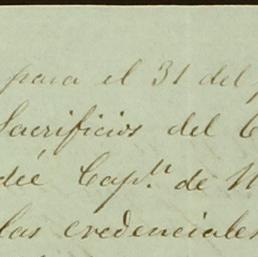 para el 31 del
Sacrificios del
Cap.n de
las credenciales